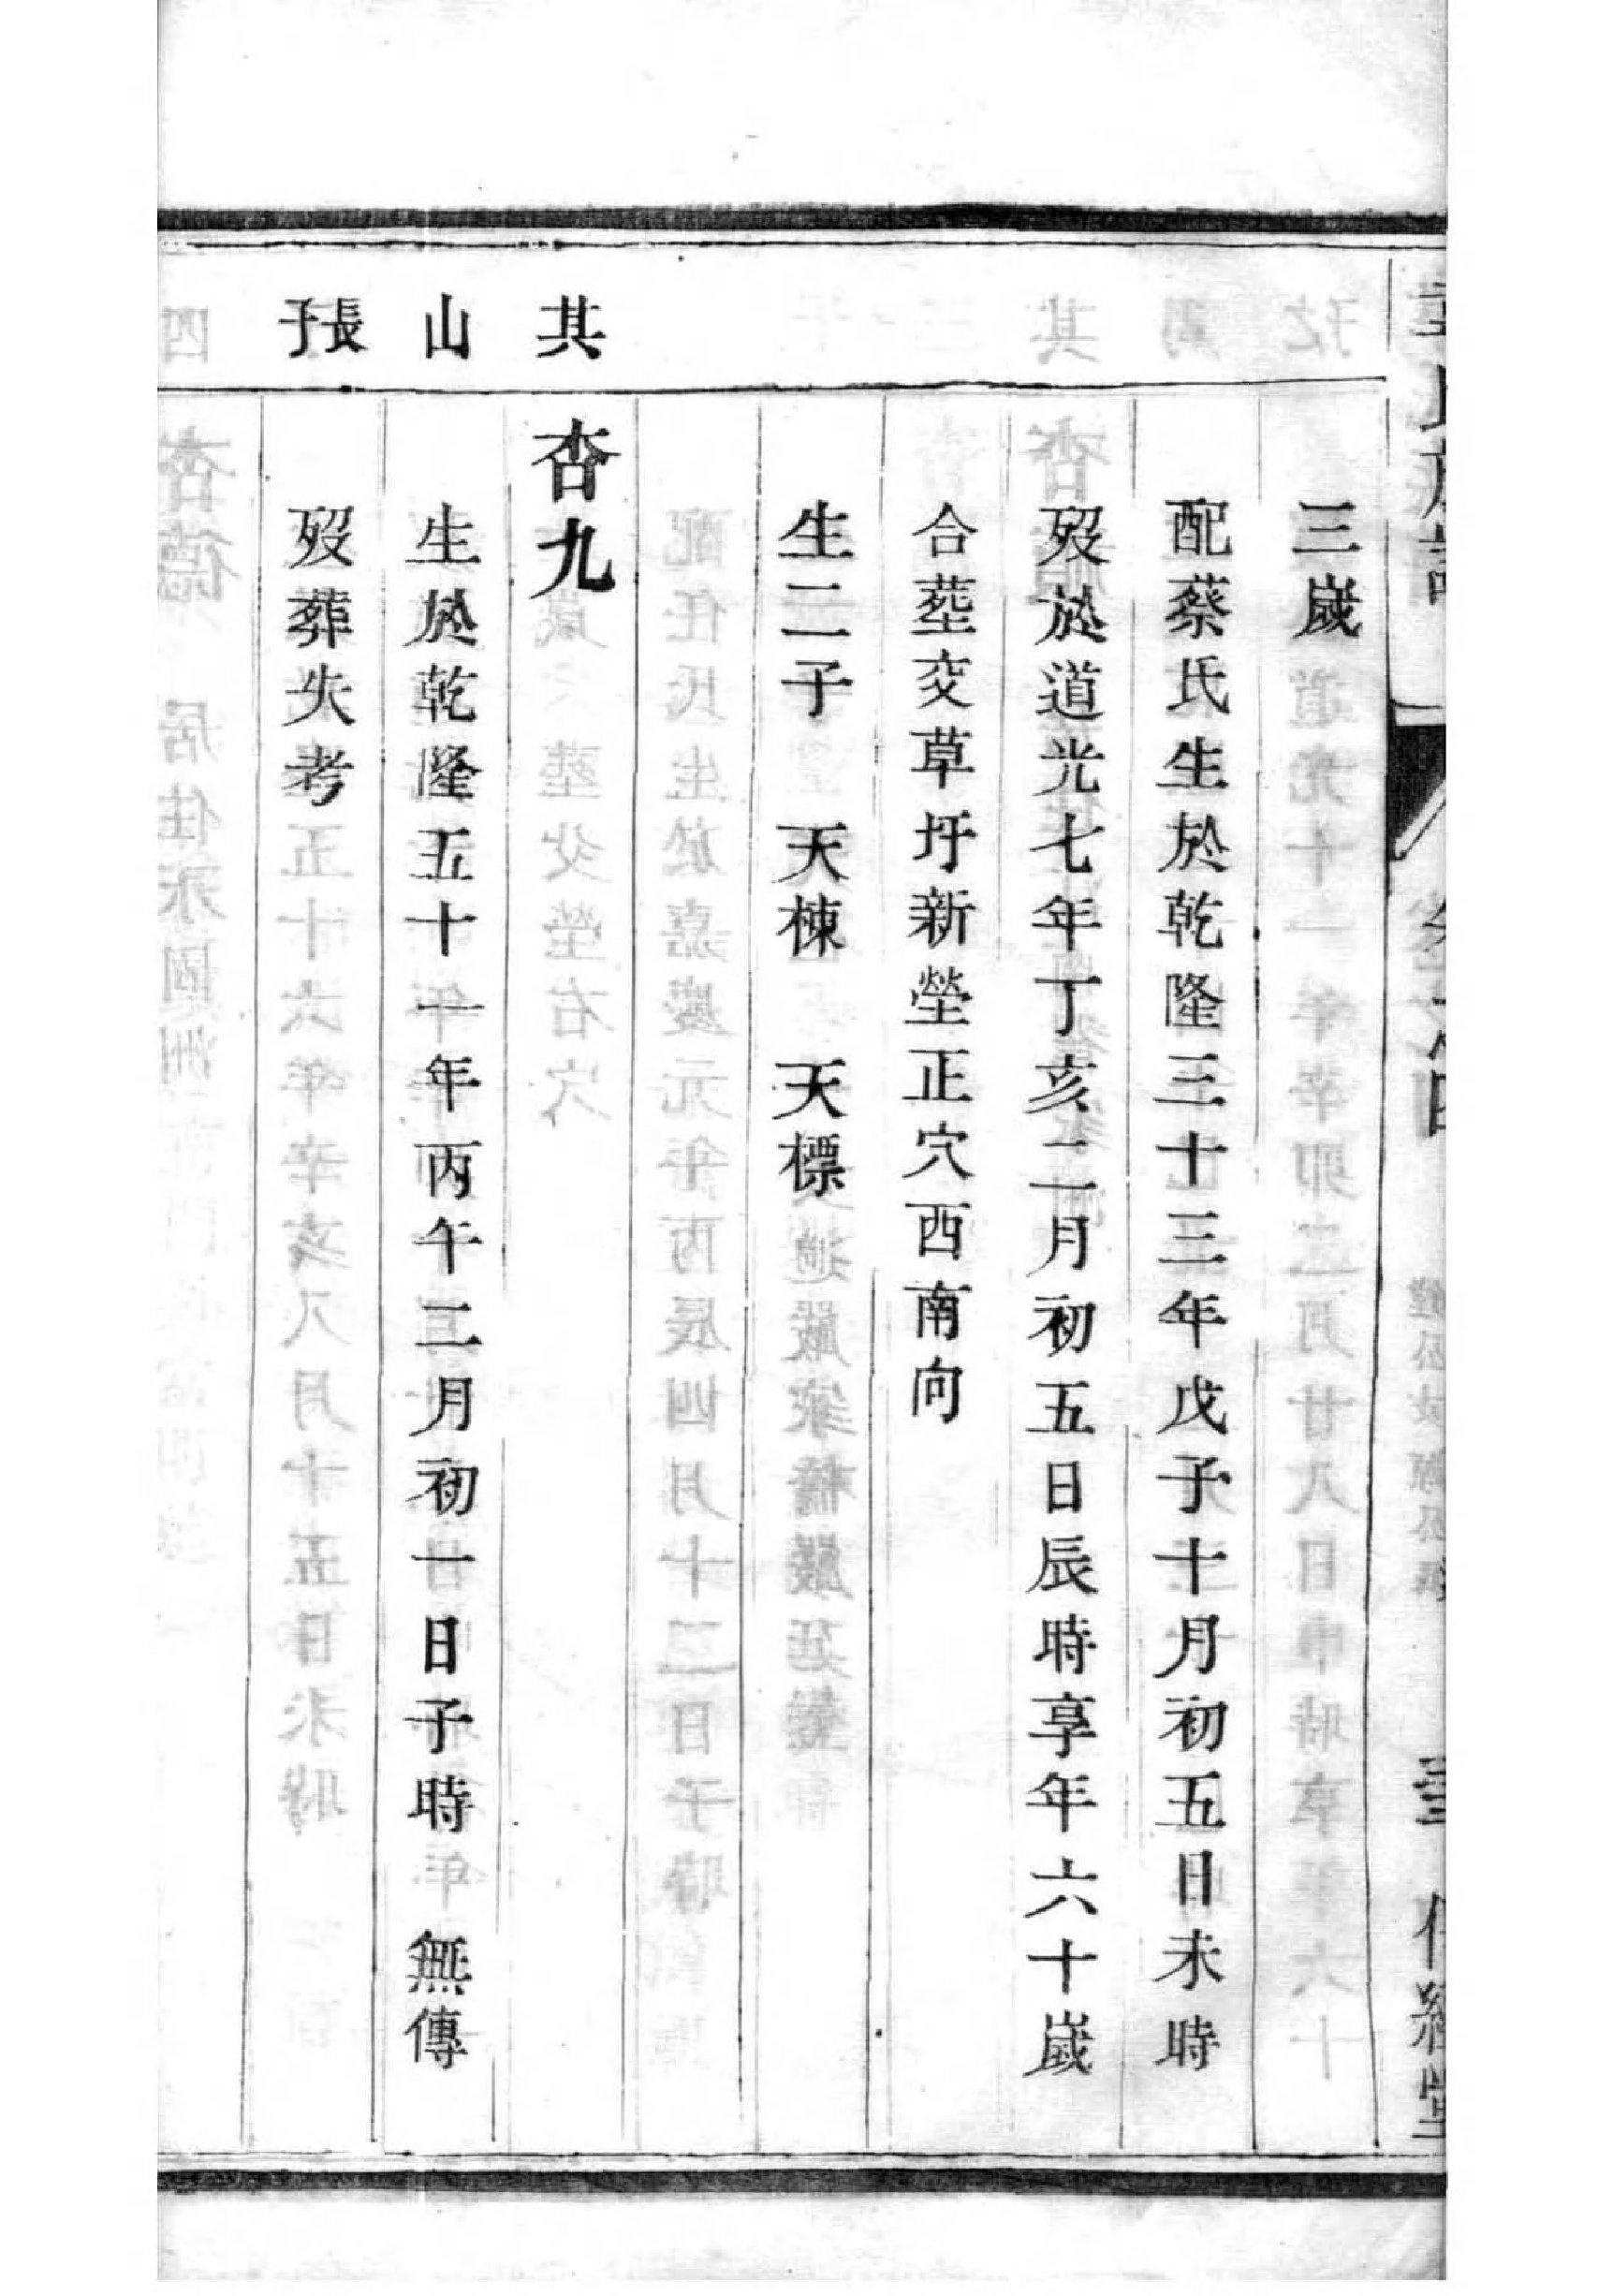 三歲
配蔡氏生於乾隆三十三年戊子十月初五日未時
歿於道光七年丁亥二月初五日辰時享年六十歲
合塟交草圩新塋正穴西南向
生二子 天棟 天標
其
杏九
山
生於乾隆五十一年丙午二月初一日子時 無傳
長子
歿葬失考